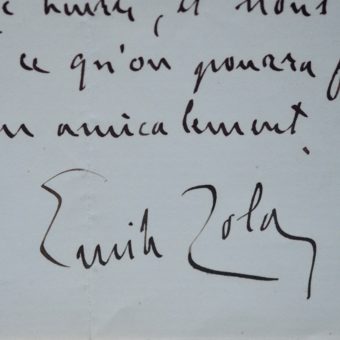 et nous
ce qu'on pourra
amicalement.
Emile Zola